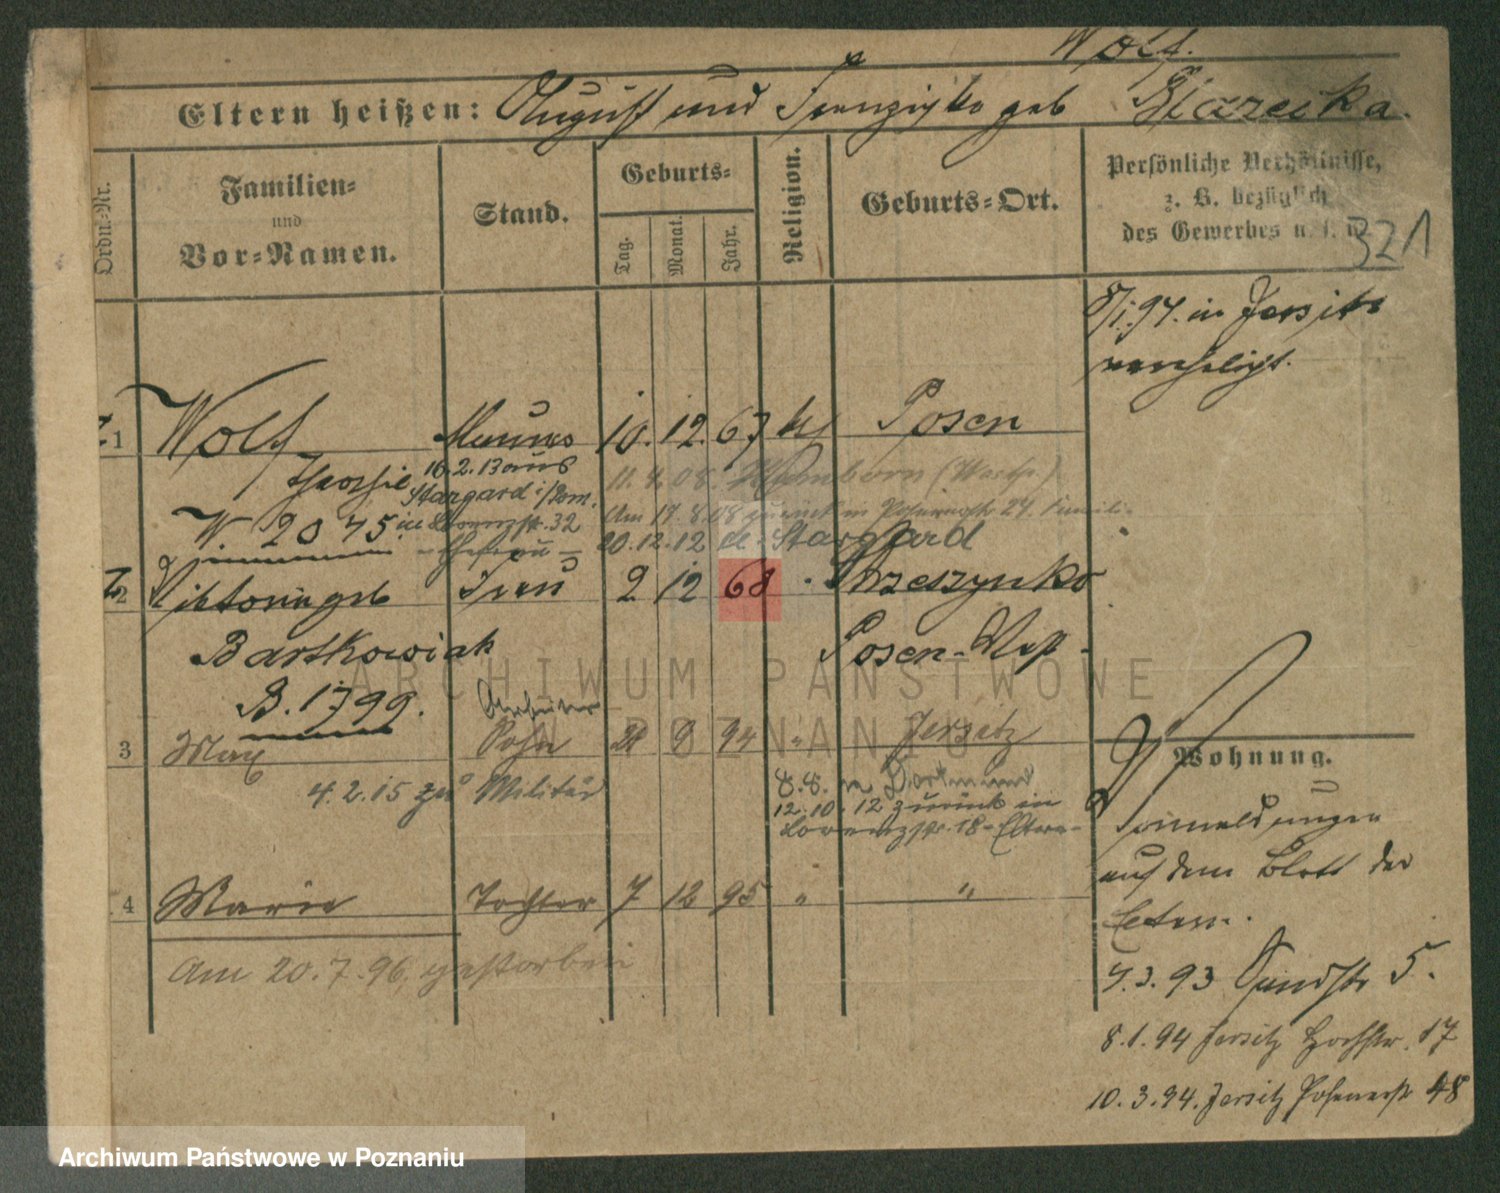 Wolf.
Eltern heißen: August und Franziska geb Pjarecka.
Ordn-Nr.
Familien=
und
Vor=Namen.
Stand.
Geburts=
Tag.
Monat.
Jahr.
Religion.
Geburts=Ort.
Persönliche Verhältnisse,
z. B. bezüglich
des Gewerbes u. s. w.
321
8/1.94. in Jersitz
verehelicht.
1 Wolf 10. 12. 67 kath Posen
Theophil
16.2.13 aus
Stargard i/Pom.
in Lorenzstr. 32
– Ehefrau –
W 2075
11. 4. 08. (Westf.)
Am 17.8.08 zurück in
20.12.12 Stargard
2 Viktoria geb Frau 2 12 68 Strzeszynko
Bartkowiak Posen-West
B. 1799.
3 Max Sohn 21 9 94 " Jersitz
4.2.15 zum Militär
8.8. in Dortmund
12.10.12 zurück in
Lorenzstr. 18 – Eltern –
4 Marie Tochter 7 12 95 " "
Am 20.7.96, gestorben
Wohnung.
auf dem Blatt der
Eltern.
4.3.93 5.
8.1.94 Jersitz Hochstr. 17
10.3.94. Jersitz Posenerstr 48
ARCHIWUM PAŃSTWOWE
W POZNANIU
Archiwum Państwowe w Poznaniu